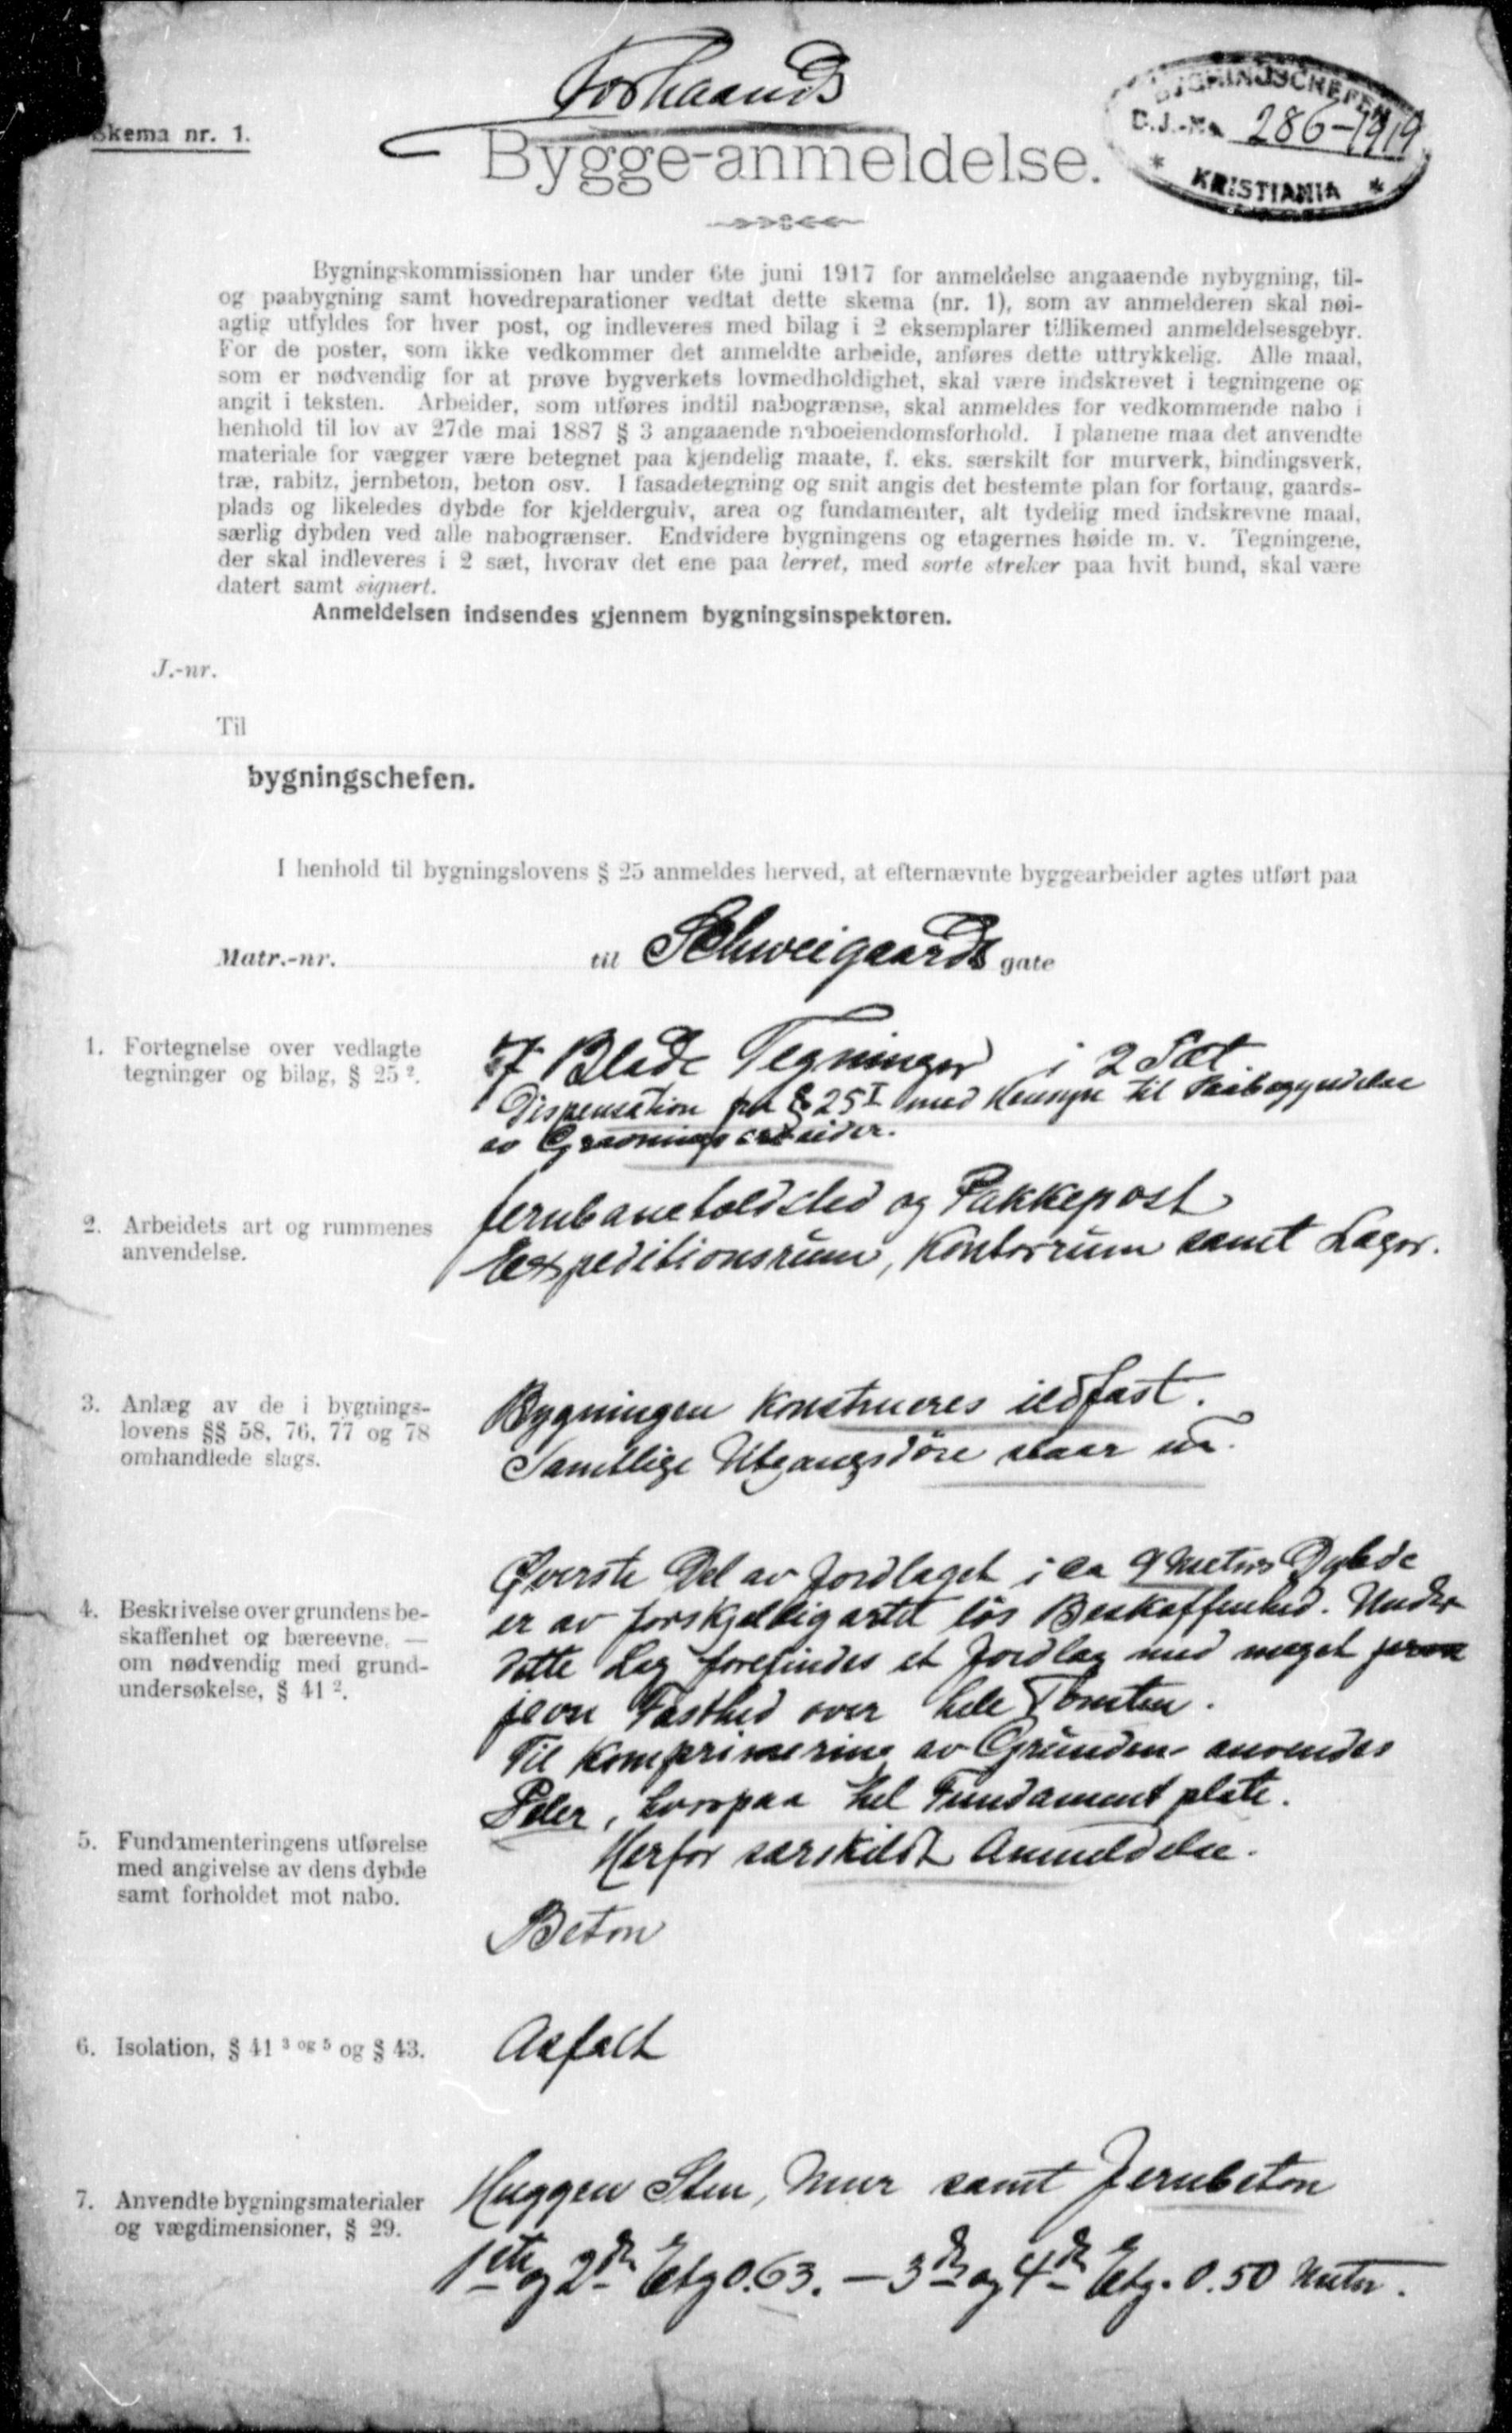 Forhaands
Skema nr. 1.
Bygge-anmeldelse.
BYGNINGSCHEFEN
D.J.-No. 286-1919
* KRISTIANIA *
Bygningskommissionen har under 6te juni 1917 for anmeldelse angaaende nybygning, til-
og paabygning samt hovedreparationer vedtat dette skema (nr. 1), som av anmelderen skal nøi-
agtig utfyldes for hver post, og indleveres med bilag i 2 eksemplarer tillikemed anmeldelsesgebyr.
For de poster, som ikke vedkommer det anmeldte arbeide, anføres dette uttrykkelig. Alle maal,
som er nødvendig for at prøve bygverkets lovmedholdighet, skal være indskrevet i tegningene og
angit i teksten. Arbeider, som utføres indtil nabogrænse, skal anmeldes for vedkommende nabo i
henhold til lov av 27de mai 1887 § 3 angaaende naboeiendomsforhold. I planene maa det anvendte
materiale for vægger være betegnet paa kjendelig maate, f. eks. særskilt for murverk, bindingsverk,
træ, rabitz, jernbeton, beton osv. I fasadetegning og snit angis det bestemte plan for fortaug, gaards-
plads og likeledes dybde for kjeldergulv, area og fundamenter, alt tydelig med indskrevne maal,
særlig dybden ved alle nabogrænser. Endvidere bygningens og etagernes høide m. v. Tegningene,
der skal indleveres i 2 sæt, hvorav det ene paa lerret, med sorte streker paa hvit bund, skal være
datert samt signert.
Anmeldelsen indsendes gjennem bygningsinspektøren.
J.-nr.
Til
bygningschefen.
I henhold til bygningslovens § 25 anmeldes herved, at efternævnte byggearbeider agtes utført paa
Matr.-nr. til Schweigaards gate
1. Fortegnelse over vedlagte
tegninger og bilag, § 25 ².
7 Blade Tegninger i 2 Sæt
Dispensation fra § 25 I med Hensyn til Paabegyndelse
av Gravningsarbeider.
2. Arbeidets art og rummenes
anvendelse.
Jernbanetoldsted og Pakkepost
Expeditionsrum, Kontorrum samt Lager.
3. Anlæg av de i bygnings-
lovens §§ 58, 76, 77 og 78
omhandlede slags.
Bygningen konstrueres ildfast.
Samtlige Utgangsdøre slaar ut.
4. Beskrivelse over grundens be-
skaffenhet og bæreevne, —
om nødvendig med grund-
undersøkelse, § 41 ².
Øverste Del av Jordlaget i ca 9 Meters Dybde
er av forskjelligartet løs Beskaffenhed. Under
dette Lag forefindes et Jordlag med meget
jevn Fasthed over hele Tomten.
Til Komprimering av Grunden anvendes
Peler, hvorpaa hel Fundamentplate.
Herfor særskildt Anmeldelse.
5. Fundamenteringens utførelse
med angivelse av dens dybde
samt forholdet mot nabo.
Beton
6. Isolation, § 41 ³ og ⁵ og § 43.
Asfalt
7. Anvendte bygningsmaterialer
og vægdimensioner, § 29.
Huggen Sten, Mur samt Jernbeton
1ste og 2den Etg 0.63. — 3de og 4de Etg. 0.50 Meter.